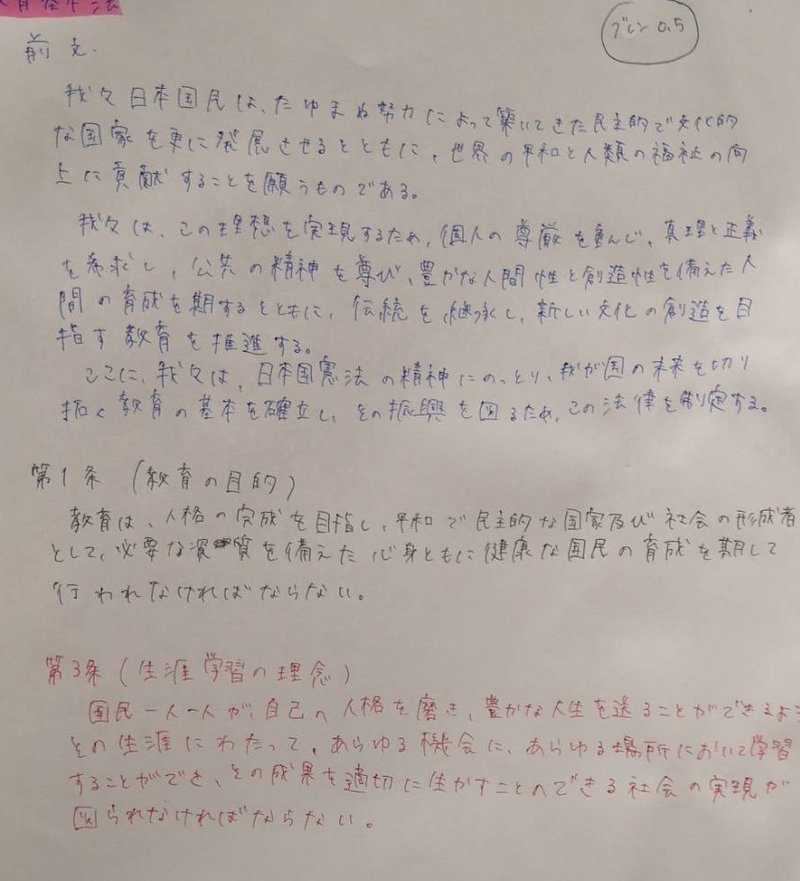 教育基本法
グレン 0.5
前文.
我々日本国民は、たゆまぬ努力によって築いてきた民主的で文化的
な国家を更に発展させるとともに、世界の平和と人類の福祉の向
上に貢献することを願うものである。
我々は、この理想を実現するため、個人の尊厳を重んじ、真理と正義
を希求し、公共の精神を尊び、豊かな人間性と創造性を備えた人
間の育成を期するとともに、伝統を継承し、新しい文化の創造を目
指す教育を推進する。
ここに、我々は、日本国憲法の精神にのっとり、我が国の未来を切り
拓く教育の基本を確立し、その振興を図るため、この法律を制定する。
第1条 (教育の目的)
教育は、人格の完成を目指し、平和で民主的な国家及び社会の形成者
として、必要な資質を備えた心身ともに健康な国民の育成を期して
行われなければならない。
第3条 (生涯学習の理念)
国民一人一人が、自己の人格を磨き、豊かな人生を送ることができるよう
その生涯にわたって、あらゆる機会に、あらゆる場所において学習
することができ、その成果を適切に生かすことのできる社会の実現が
図られなければならない。